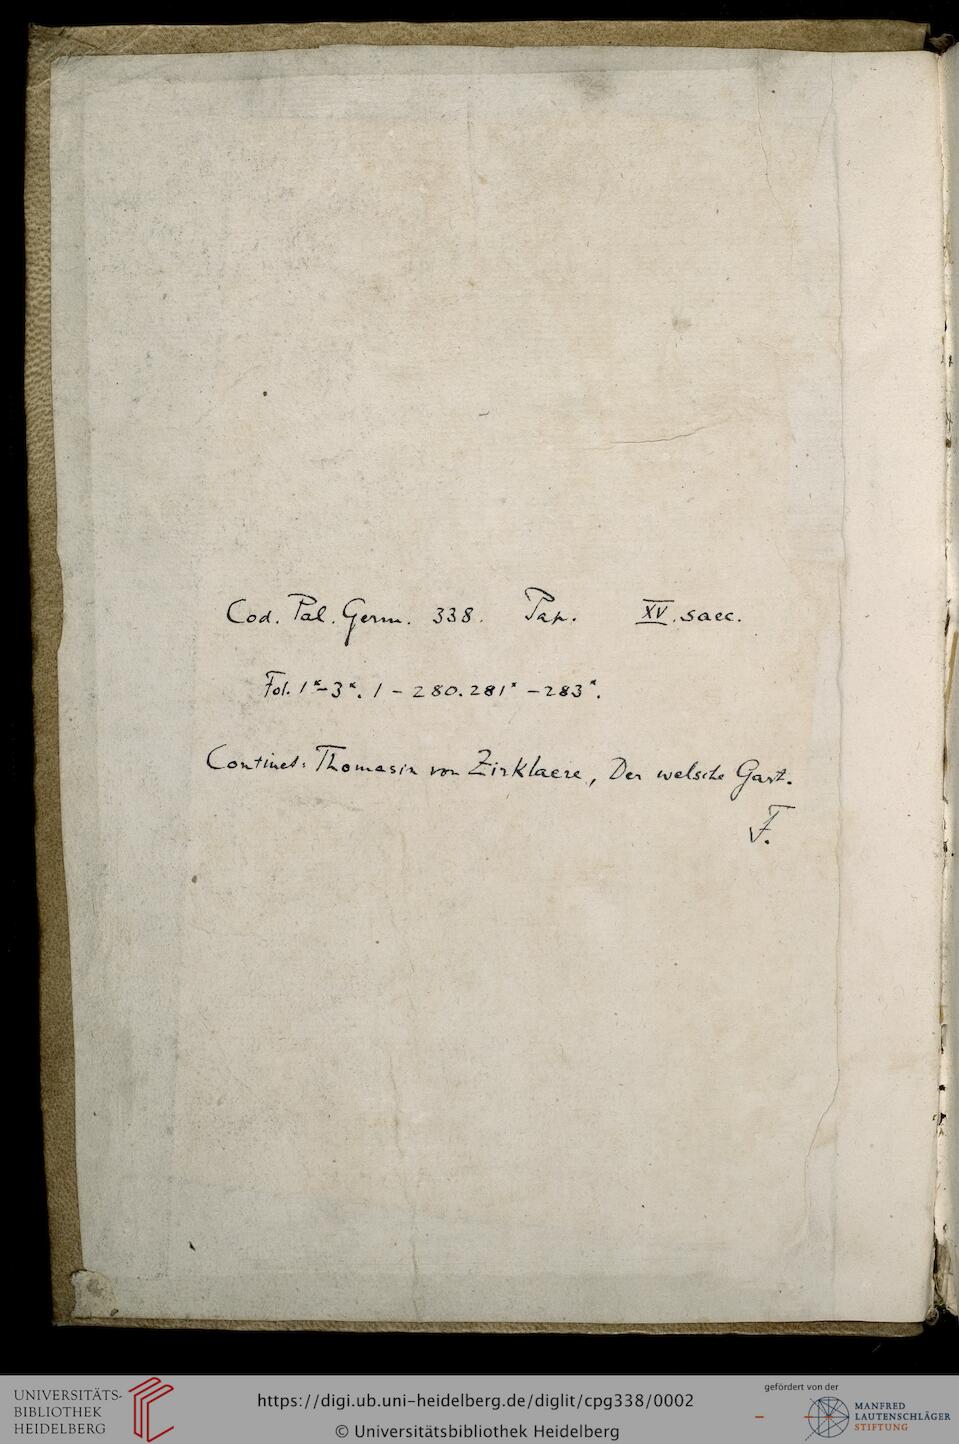 Cod. Pal. Germ. 338. Pap. XV. saec.
Fol. 1*-3*. 1 - 280. 281* - 283*.
Continet: Thomasin von Zirklaere, Der welsche Gast.
F.
UNIVERSITÄTS-
BIBLIOTHEK
HEIDELBERG
https://digi.ub.uni-heidelberg.de/diglit/cpg338/0002
© Universitätsbibliothek Heidelberg
gefördert von der
MANFRED
LAUTENSCHLÄGER
STIFTUNG